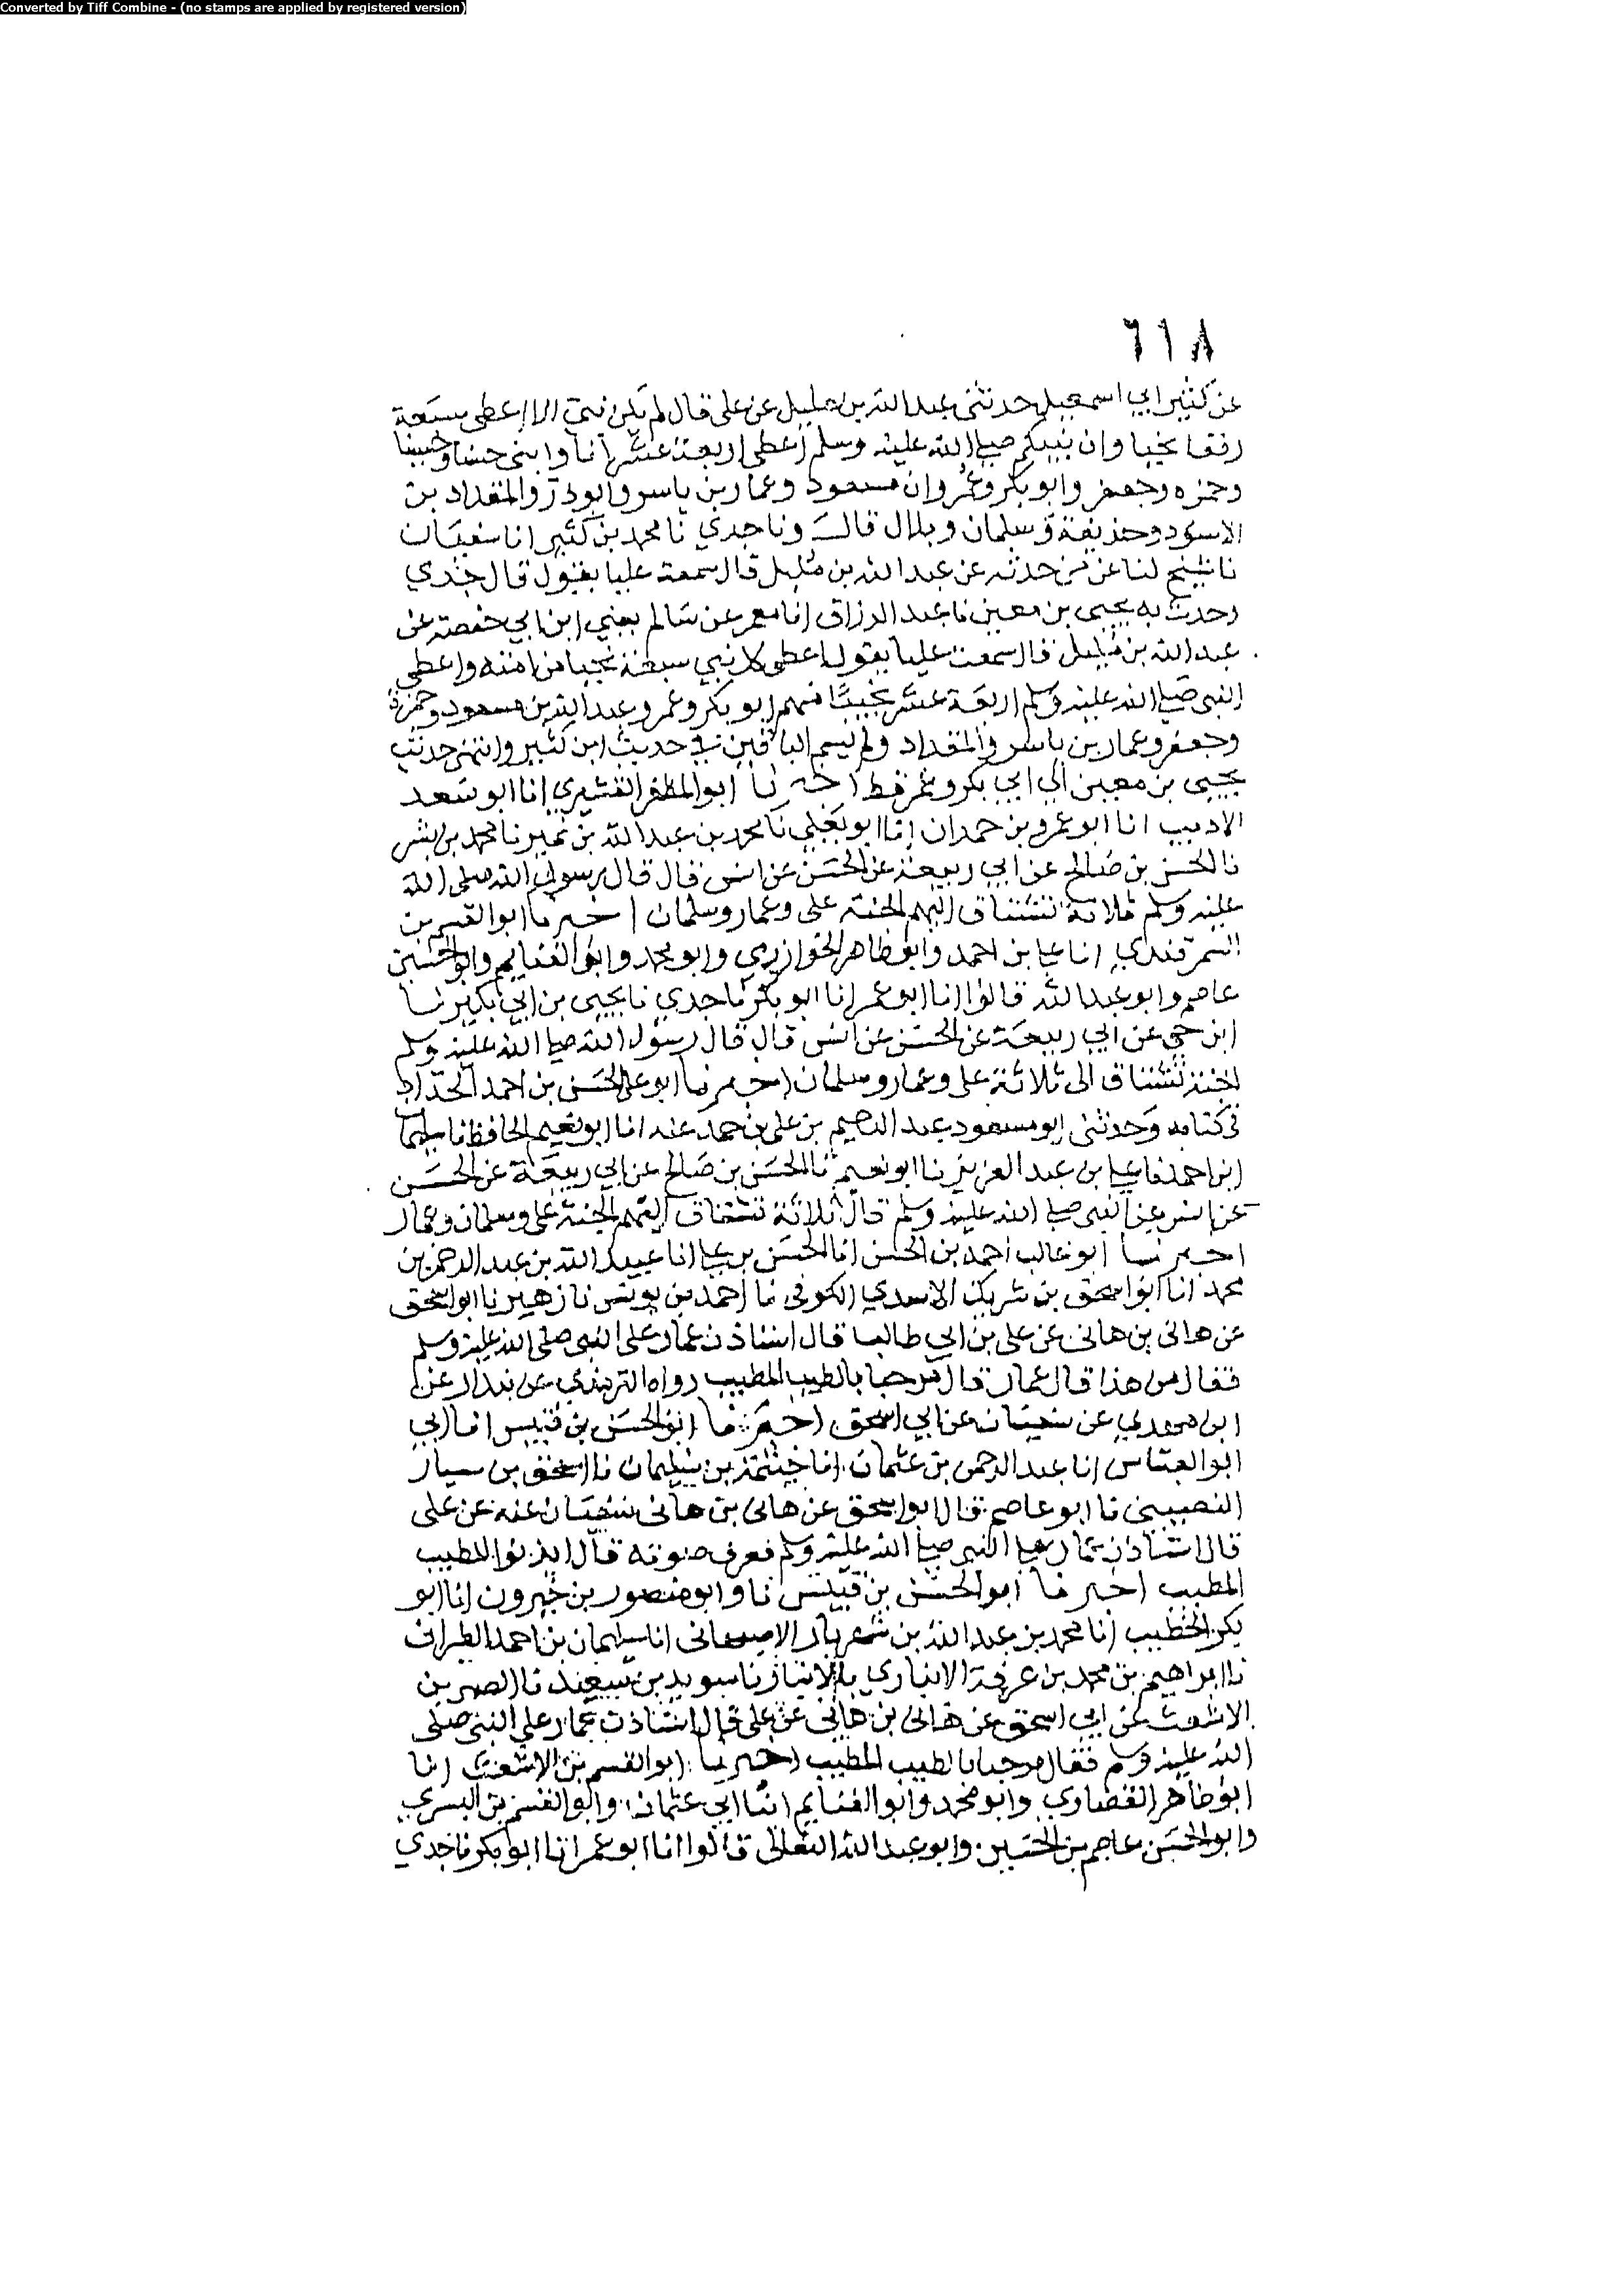 Converted by Tiff Combine - (no stamps are applied by registered version)
٦١٨
عن كثير ابي اسمعيل حدثني عبد الله بن مليل عن علي قال لم يكن نبي الا اعطي سبعة
رفقا نجبا وان نبيكم صلى الله عليه وسلم اعطي اربعة عشر انا وابني حسنا وحسينا
وحمزه وجعفر وابو بكر وعمر وابن مسعود وعمار بن ياسر وابو ذر والمقداد بن
الاسود وحذيفة وسلمان وبلال قال ونا جدي نا محمد بن كثير انا سفيان
نا شيخ لنا عن من حدثه عن عبد الله بن مليل قال سمعت عليا يقول قال جدي
وحدث به يحيى بن معين نا عبد الرزاق انا معمر عن سالم يعني ابن ابي حفصة عن
عبد الله بن مليل قال سمعت عليا يقول اعطي كل نبي سبعة نجبا من امته واعطي
النبي صلى الله عليه وسلم اربعة عشر نجيبا منهم ابو بكر وعمر وعبد الله بن مسعود وحمزة
وجعفر وعمار بن ياسر والمقداد ولم يسم الباقين في حديث ابن كثير وانتهى حديث
يحيى بن معين الى ابي بكر وعمر فقط اخبرنا ابو المظفر القشيري انا ابو سعد
الاديب انا ابو عمرو بن حمدان انا ابو يعلى نا محمد بن عبد الله بن نمير نا محمد بن بشر
نا الحسن بن صالح عن ابي ربيعة عن الحسن عن انس قال قال رسول الله صلى الله
عليه وسلم ثلاثة تشتاق اليهم الجنة علي وعمار وسلمان اخبرنا ابو القسم بن
السمرقندي انا علي بن احمد وابو طاهر الخوارزمي وابو محمد وابو الغنايم وابو الحسين
عاصم وابو عبد الله قالوا انا ابو عمر انا ابو بكر نا جدي نا يحيى بن ابي بكير نا
ابن حي عن ابي ربيعة عن الحسن عن انس قال قال رسول الله صلى الله عليه وسلم
الجنة تشتاق الى ثلاثة علي وعمار وسلمان اخبرنا ابو علي الحسن بن احمد الحداد
في كتابه وحدثني ابو مسعود عبد الرحيم بن علي بن حمد عنه انا ابو نعيم الحافظ نا سليمان
ابن احمد نا علي بن عبد العزيز نا ابو نعيم نا الحسن بن صالح عن ابي ربيعة عن الحسن
عن انس عن النبي صلى الله عليه وسلم قال ثلاثة تشتاق اليهم الجنة علي وسلمان وعمار
اخبرنا ابو غالب احمد بن الحسن انا الحسن بن علي انا عبيد الله بن عبد الرحمن بن
محمد انا ابو اسحق بن شريك الاسدي الكوفي نا احمد بن يونس نا زهير نا ابو اسحق
عن هاني بن هاني عن علي بن ابي طالب قال استاذن عمار على النبي صلى الله عليه وسلم
فقال من هذا قال عمار قال مرحبا بالطيب المطيب رواه الترمذي عن بندار عن
ابن مهدي عن سفيان عن ابي اسحق اخبرنا ابو الحسن بن قبيس انا ابي
ابو العباس انا عبد الرحمن بن عثمان انا خيثمة بن سليمان نا اسحق بن سيار
النصيبيني نا ابو عاصم قال ابو اسحق عن هاني بن هاني سفيان عنه عن علي
قال استاذن عمار على النبي صلى الله عليه وسلم فعرف صوته قال ايذنوا للطيب
المطيب اخبرنا ابو الحسن بن قبيس نا وابو منصور بن خيرون انا ابو
بكر الخطيب انا محمد بن عبد الله بن شهريار الاصبهاني انا سليمان بن احمد الطبراني
نا ابراهيم بن محمد بن عرفة الانباري بالانبار نا سويد بن سعيد نا الصبر بن
الاشعث عن ابي اسحق عن هاني بن هاني عن علي قال استاذن عمار على النبي صلى
الله عليه وسلم فقال مرحبا بالطيب المطيب اخبرنا ابو القسم بن الاشعث انا
ابو طاهر القصاري وابو محمد وابو الغنايم ابنا ابي عثمان وابو القسم بن البسري
وابو الحسن عاصم بن الحسين وابو عبد الله النعالي قالوا انا ابو عمر انا ابو بكر نا جدي